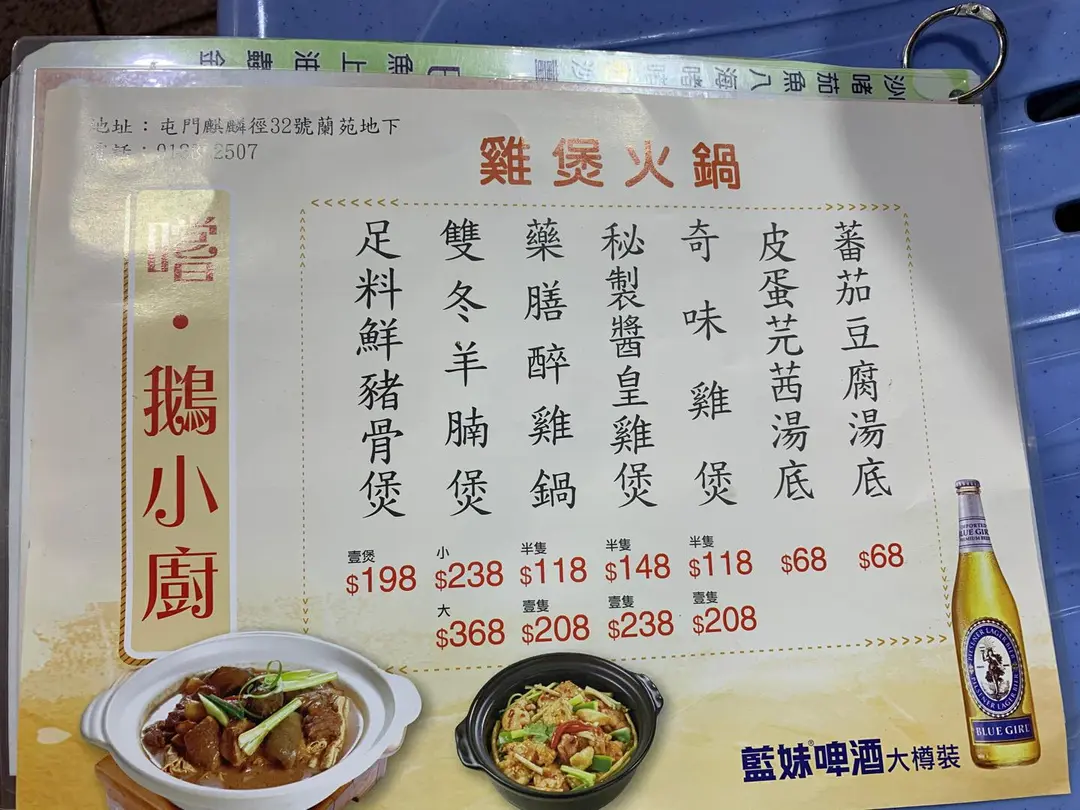 金蠔油上魚
沙嗜茄魚八海嗜
地址：屯門麒麟徑32號蘭苑地下
電話：2507
雞煲火鍋
嚐・鵝小廚
蕃茄豆腐湯底
$68
皮蛋芫茜湯底
$68
奇味雞煲
半隻
$118
壹隻
$208
秘製醬皇雞煲
半隻
$148
壹隻
$238
藥膳醉雞鍋
半隻
$118
壹隻
$208
雙冬羊腩煲
小
$238
大
$368
足料鮮豬骨煲
壹煲
$198
IMPORTED
BLUE GIRL
PREMIUM BEER
PILSENER LAGER BIER
PILSENER LAGER BIER
BLUE GIRL
藍妹啤酒大樽裝